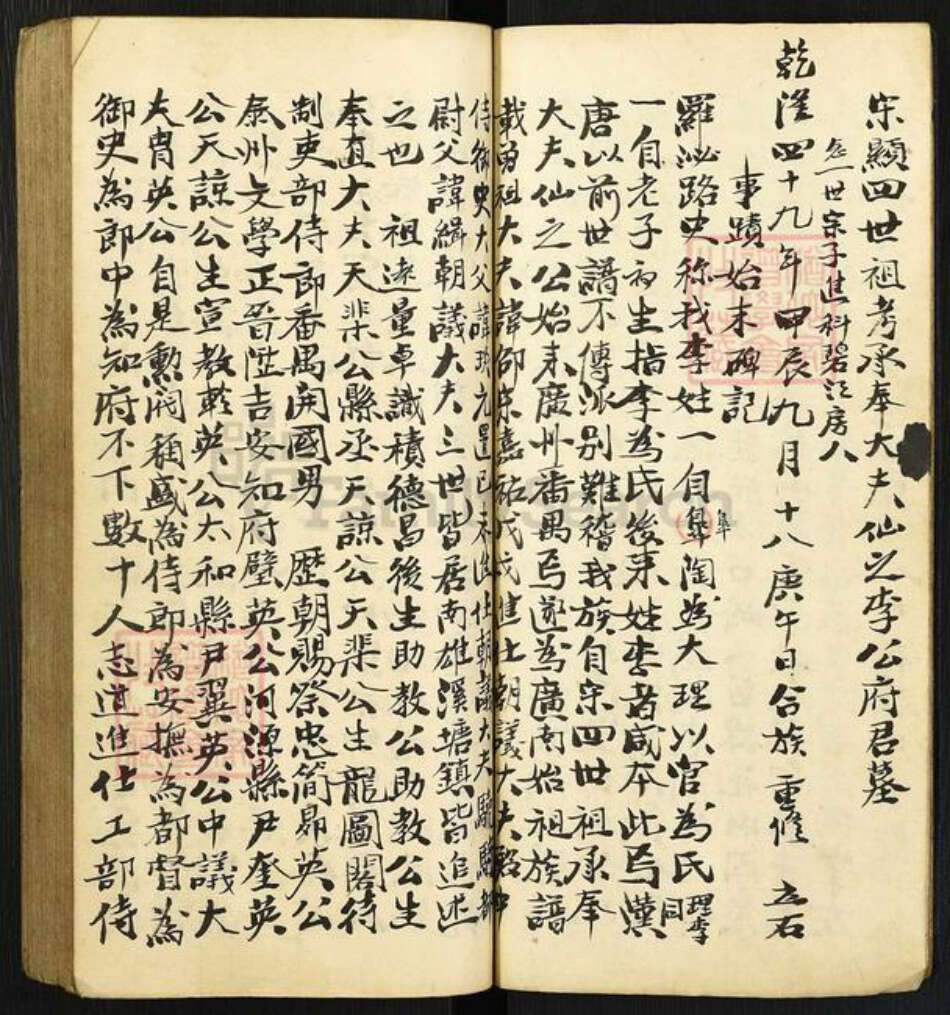 宋顯四世祖考承奉大夫仙之李公府君墓
世宗子進科碧江房人
乾隆四十九年甲辰九月十八庚午日合族重修 立石
事蹟始末碑記
羅泌路史称我李姓一自皋陶為大理以官為氏理李同
一自老子初生指李為氏後来姓李者咸本此焉漢
唐以前世譜不傳派别難稽我族自宋四世祖承奉
大夫仙之公始来廣州番禺焉遂為廣南始祖族譜
載勇祖大夫諱邰宋熹祐戊戌進士朝議大夫
侍御史大父諱珧元豊己未進仕朝議大夫
尉父諱緝朝議大夫三世皆居南雄溪塘鎮皆追述
之也 祖遠量卓識積德昌後生助教公助教公生
奉直大夫天棐公縣丞天諒公天棐公生龍圖閣待
制吏部侍郎番禺開國男 歴朝賜祭忠簡昴英公
泰州文學正晉陞吉安知府璧英公河源縣尹奎英
公天諒公生宣教乾英公太和縣尹翼英公中議大
夫胄英公自是勲閥稱盛為侍郎為安撫為都督為
御史為郎中為知府不下數十人志道進仕工部侍